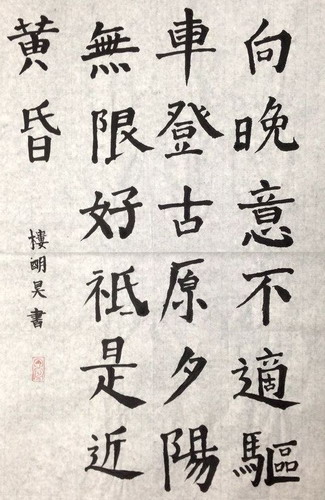 向晚意不適驅
車登古原夕陽
無限好祗是近
黃昏
樓明昊書